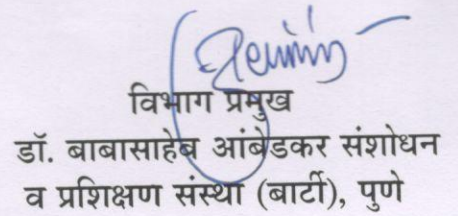 विभाग प्रमुख
डॉ. बाबासाहेब आंबेडकर संशोधन
व प्रशिक्षण संस्था (बार्टी), पुणे